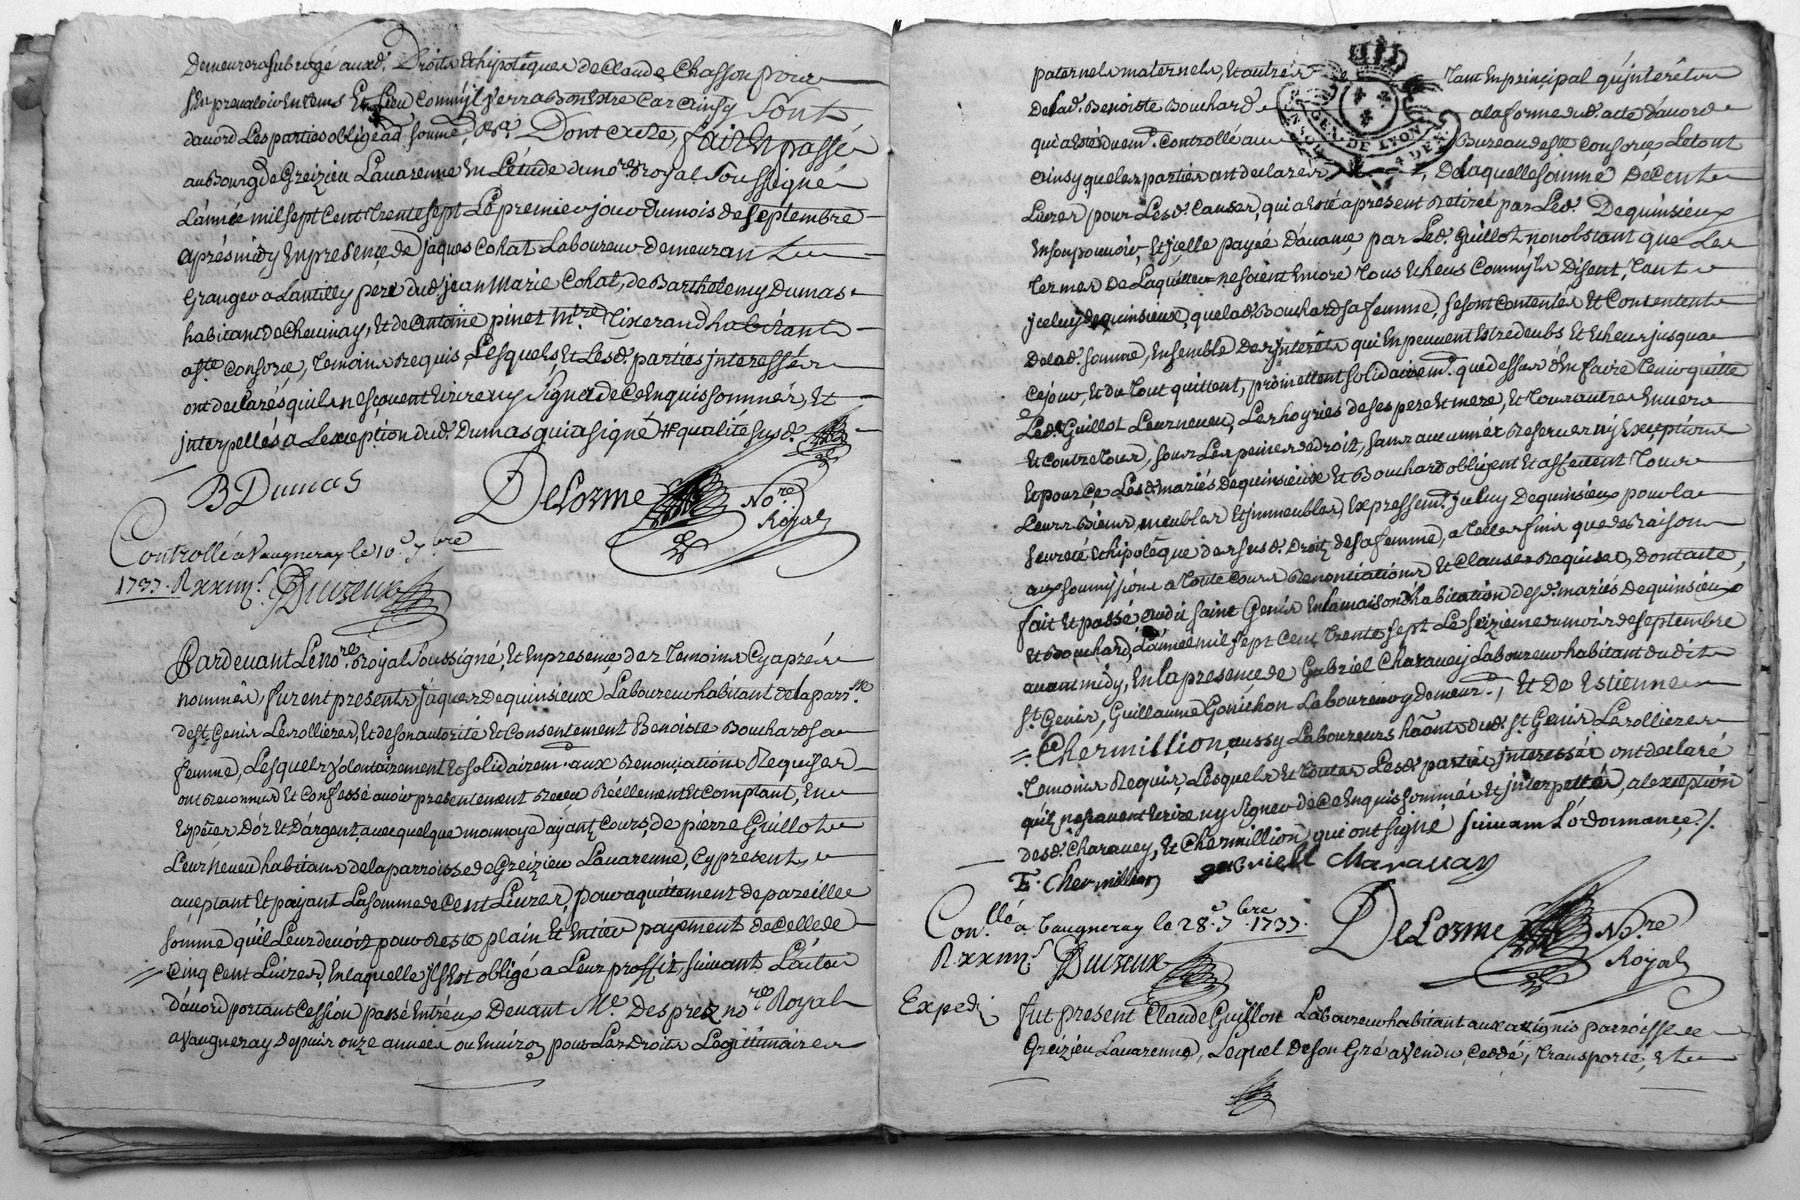 demeurera subrogé auxd. Droits & hipoteques de Claude Chasson pour
s'en prevaloir en tems Et Lieu comm'il verra bon Estre Car ainsy sont
d'acord Les parties oblige a soumé, &a. Dont acte, fait Et passé
au Bourg de Greizieu Lavarenne En L'etude du nore. royal soussigné
L'année mil sept Cent Trente sept Le premier jour du mois de septembre
aprés midy En presençe de Jaques Cohat Laboureur demeurant
Granger a Lantilly pere dud. jean Marie Cohat, de Barthelemy Dumas
habitant de Chevinay, Et de Antoine pinet mtre. Tixerand habitant
aste. Consorçe, Temoins Requis, Lesquels Et Lesd. parties jnteressées
ont declarés qu'ils ne sçavent Ecrire ny signer de ce Enquis sommés, Et
jnterpellés a L'exception dud. Dumas qui a signé # qualité susd.
B Dumas
DeLorme Nore. Royal
Controllé a Vaugneray le 10e. 7bre
1737. R xxiiijs. Duizeux
Pardevant Le nore. Royal soussigné, Et En presençe des Temoins Cy aprés
nommés, furent presents jaques Dequinsieux Laboureur habitant de la parrsse.
de st. Genis Lerollieres, Et de son autorité Et Consentement Benoiste Bouchard sa
femme, Lesquels volontairement Et solidairemt. aux Renonciations Requises
ont Reconnus Et Confessé avoir presentement Receu Réellement Et Comptant, En
Espéces D'or Et D'argent avec quelque monnoye ayant Cours de pierre Guillot
Leur Neveu habitans de la parroisse de Greizieu Lavarenne, Cy present,
aceptant Et payant La somme de Cent Livres, pour aquittement de pareille
somme qu'il Leur devoit pour Reste plain Et Entier payement de Celle de
Cinq Cent Livres, En laquelle jl s'est obligé a Leur proffit, suivant L'acte
d'acord portant Cession passé Entr'eux Devant Me. Desprez nore. Royal
a Vaugneray Depuis onze années ou Environ pour Les Droits Legitimaires
paternels maternels, Et autres Tant En principal qu'jnterêts
de lad. Benoiste Bouchard a la forme dud. acte d'acord
qui a eté duemt. Controllé au Bureau de ste Consorçe, Le tout
ainsy que les parties ont declarés, De laquelle somme de Cent
Livres, pour Lesd. Causes, qui a eté a present Retirée par Led. Dequinsieux
En son pouvoir, Et jcelle payée D'avance par Led. Guillot nonobstant que Les
Termes de Laquelle ne soient Encore Tous Echeus Comm'jls Disent, Tant
jceluy Dequinsieux, que lad. Bouchard sa femme, se sont Contentés Et Contentent
de lad. somme, Ensemble Des jnterêts qui En peuvent Estre deubs Et Echeus jusqu'a
Ce jour, Et du Tout quittent, promettent solidairemt. que dessus d'En faire Tenir quitte
Led. Guillot Leur neveu, Les hoyries de ses pere Et mere, Et Tous autres Envers
Et Contre Tous, sous Les peines de droit, sans aucunnes Reserves ny Exceptions
Et pour Çe Lesd. mariés Dequinsieux Et Bouchard obligent Et affectent Tous
Leurs Biens, meubles Et jmmeubles, Expressemt. jceluy Dequinsieux pour la
seureté Et hipotêque des susd. Droits de sa femme, a telles fins que de Raison
aux soumissions a Toutes Cours Renonciations Et Clauses Requises, dont acte,
fait Et passé audit saint Genis En la maison d'habitation desd. mariés Dequinsieux
Et Bouchard, L'année mil sept Cent Trente sept Le seizieme du mois de septembre
avant midy, En la presençe de Gabriel Charavey Laboureur habitant dudit
st. Genis, Guillaume Gonichon Laboureur y demeurt., Et De Estienne
Chermillion aussy Laboureurs hãnts dud. st. Genis Lerollieres
Temoins Requis, Lesquels Et Toutes Lesd. parties jnteressées ont declaré
qu'ils ne sçavent Ecrire ny signer de Ce Enquis sommés Et jnterpellés, a l'exception
desd. Charavey, Et Chermillion, qui ont signé suivant L'ordonnançe./.
E. Chermillion gabriell Charavay
Conllé. a Vaugneray le 28e. 7bre 1737.
DeLorme Nore. Royal
R. xxiiijs. Duizeux
Expedié fut present Claude Guillon Laboureur habitant aux assignis parroisse
Greizieu Lavarenne, Lequel De son Gré a Vendu Ceddé, Transporté, Et
GEN. DE LYON
4 DEN.